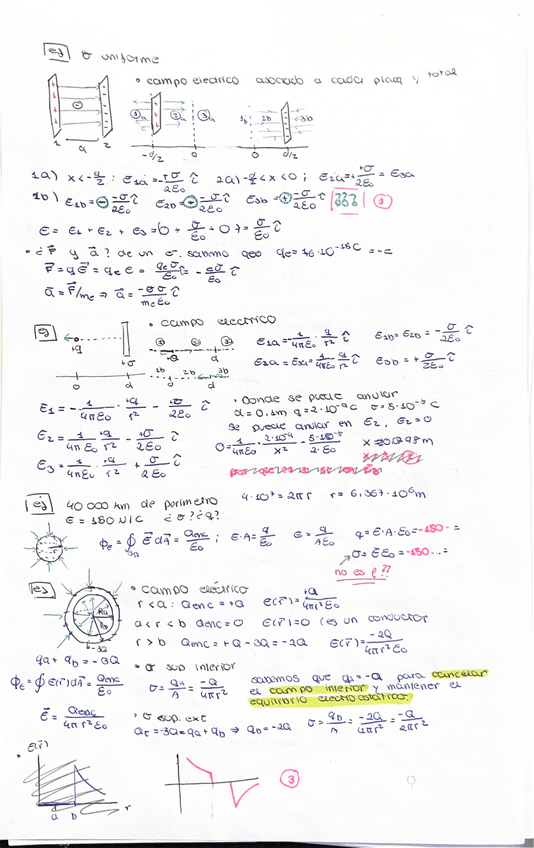 ej σ uniforme
• campo electrico asociado a cada placa y total
1 2
d
1a 2a 3a 1b 2b 3b
-d/2 0 0 d/2
1a) x<-d/2 : E1a=-+σ/2ε0 î 2a) -d/2<x<0 ; E2a=+σ/2ε0 = E3a
1b) E1b=⊖-σ/2ε0 î E2b=⊖-σ/2ε0 î E3b=⊕-σ/2ε0 î ??? 2
E = E1 + E2 + E3 = 0 + σ/ε0 + 0 = σ/ε0 î
• ¿F⃗ y a⃗? de un e⁻. sabemos que
F⃗ = qE⃗ = qe E = qeσ/ε0 î = -eσ/ε0 î
a⃗ = F⃗/me ⇒ a⃗ = -eσ/meε0 î
ej • campo electrico
+q +σ
0 d
E1a=-1/4πε0 · q/r² î E1b=E2b=-σ/2ε0 î
E2a=E3a=1/4πε0 · q/r² î E3b=+σ/2ε0 î
1b 2b 3b
E1 = -1/4πε0 · +q/r² - +σ/2ε0 î
E2 = 1/4πε0 · +q/r² - +σ/2ε0 î
E3 = 1/4πε0 · +q/r² + σ/2ε0 î
• Donde se puede anular
se puede anular en E2, E2=0
ej 40 000 km de perimetro 4·10⁷=2πr
¿σ? ¿q?
Φe = ∮ E⃗ dA⃗ = Qenc/ε0 ; E·A=q/ε0 E=q/Aε0 q=E·A·ε0=-180··=
σ=E·ε0=-180...=
no es ρ??
ej • campo eléctrico
r<a : Qenc=+Q E(r⃗)=+Q/4πr²ε0
a<r<b Qenc=0 E(r⃗)=0 (es un conductor
r>b Qenc=+Q-3Q=-2Q E(r⃗)=-2Q/4πr²ε0
-3Q
qa+qb=-3Q • σ sup interior
Φe=∮E(r⃗)dA⃗=Qenc/ε0 σ=qa/A=-Q/4πr²
sabemos que qa=-Q para cancelar
el campo interior y mantener el
equilibrio electrostático.
E⃗=Qenc/4πr²ε0 • σ sup. ext
qb=-2Q σ=qb/A=-2Q/4πr²=-Q/2πr²
E(r⃗)
3
a b r